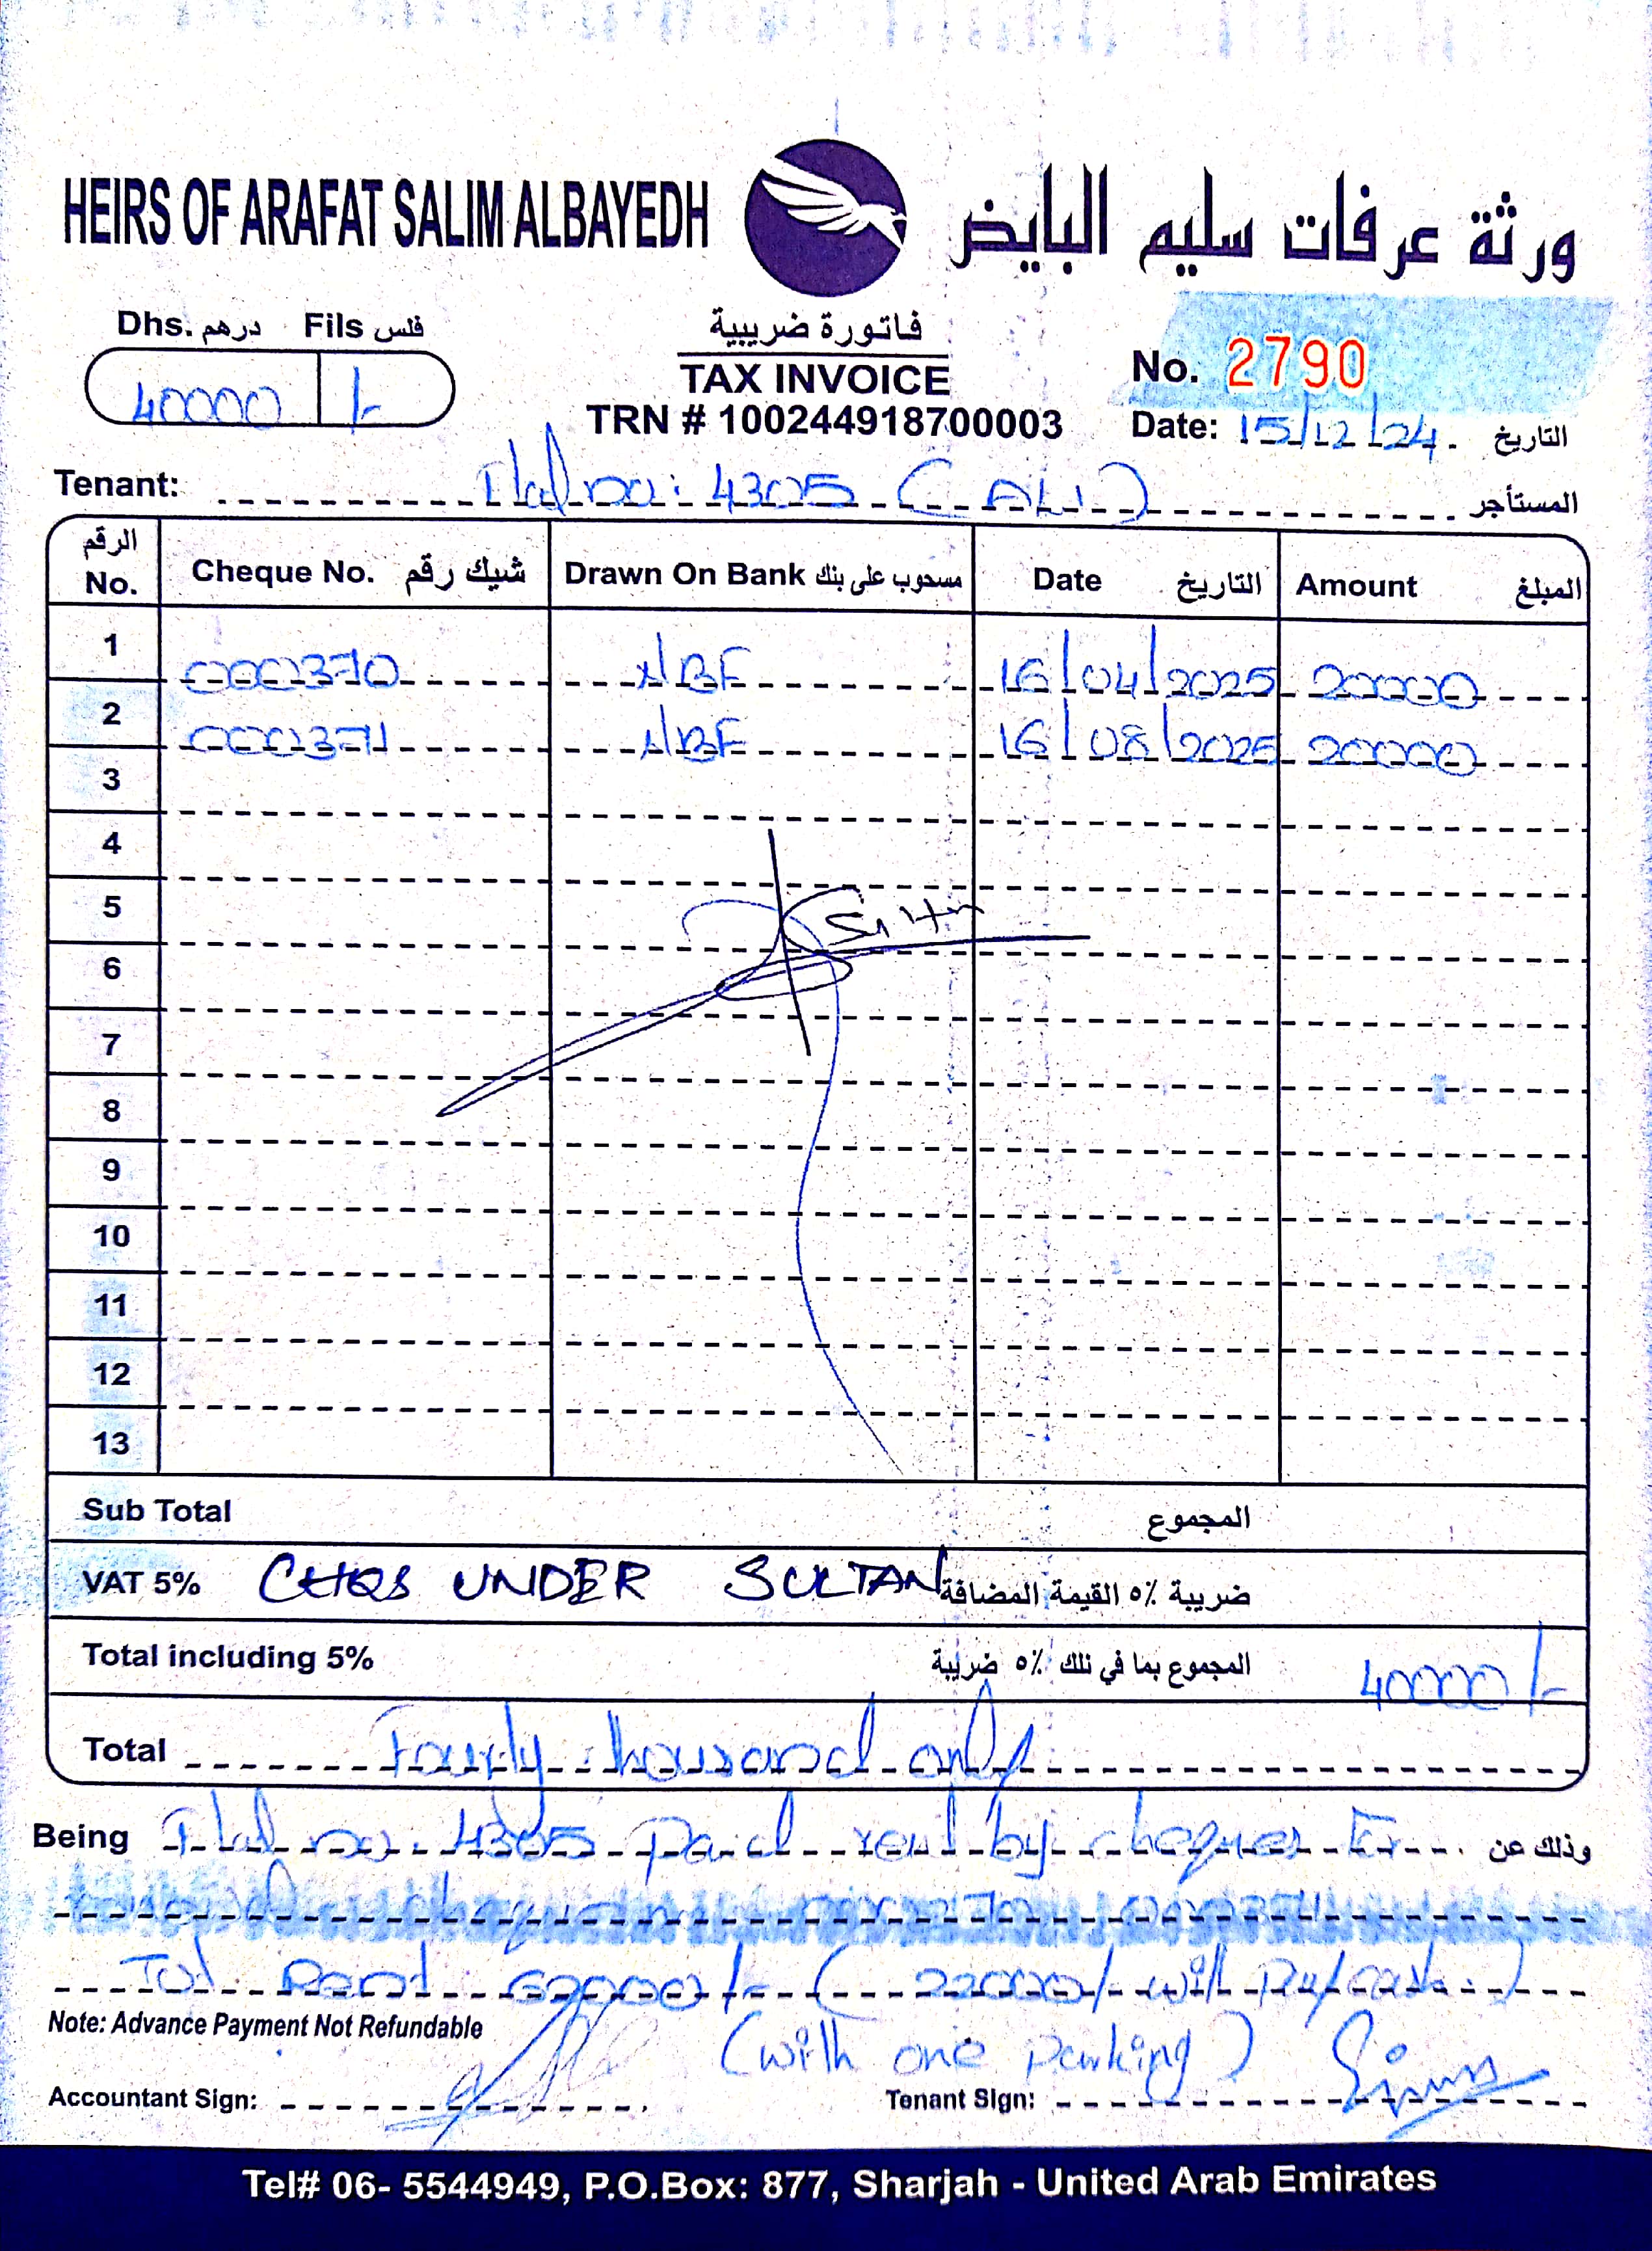 HEIRS OF ARAFAT SALIM ALBAYEDH
ورثة عرفات سليم البايض
Dhs. درهم Fils فلس
40000 /-
فاتورة ضريبية
TAX INVOICE
TRN # 100244918700003
No. 2790
Date: 15/12/24. التاريخ
Tenant: Flat no: 4305 (ALI) المستأجر
الرقم No. Cheque No. شيك رقم Drawn On Bank مسحوب على بنك Date التاريخ Amount المبلغ
1 000370 NBF 16/04/2025 20000
2 000371 NBF 16/08/2025 20000
3
4
5
6
7
8
9
10
11
12
13
Sub Total المجموع
VAT 5% CHQS UNDER SULTAN ضريبة ٥٪ القيمة المضافة
Total including 5% المجموع بما في تلك ٥٪ ضريبة 40000/-
Total Fourty thousand only
Being Flat no. 4305 paid rent by cheques وذلك عن
Rent 62000/- (22000/- will cash)
Note: Advance Payment Not Refundable
(with one parking)
Accountant Sign: Tenant Sign:
Tel# 06- 5544949, P.O.Box: 877, Sharjah - United Arab Emirates